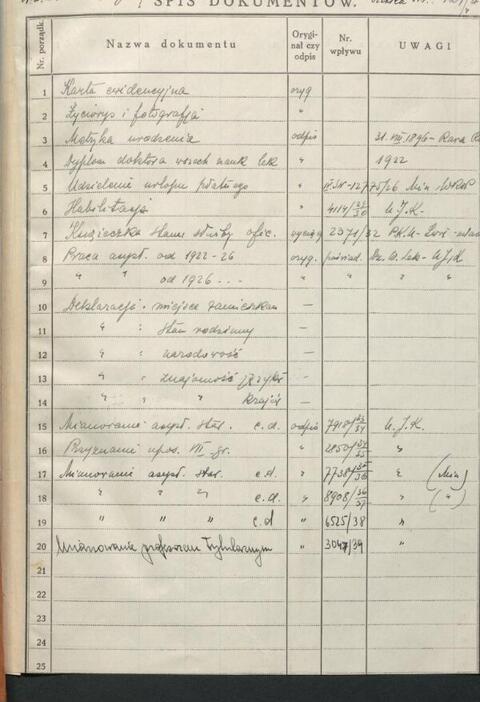 SPIS DOKUMENTÓW.
Nr. porządk. Nazwa dokumentu Orygi-nał czy odpis Nr. wpływu UWAGI
1 Karta ewidencyjna oryg
2 Życiorys i fotografja "
3 Metryka urodzenia odpis 31.VIII 1896 - Rawa
4 Dyplom doktora wszech nauk lek " 1922
5 Udzielenie urlopu płatnego "
6 Habilitacja " 4114/29/30 U.J.K.
7 Książeczka stanu służby ofic. wyciąg 2371/32 P.K.U - Lwów
8 Praca asyst. od 1922-26 oryg. poświad. U.J.K
9 " " od 1926 . . . " " "
10 Deklaracja: miejsce zamieszkan —
11 " : stan rodzinny —
12 " : narodowość —
13 " : znajomość języków —
14 " " krajów —
15 Mianowanie asyst. star. c.d. odpis 7918/33/34 U.J.K.
16 Przyznanie upos. VII gr. " 2850/34/35 "
17 Mianowanie asyst. star. c.d. " 7738/35/36 " (Min)
18 " " " c.d. " 8908/36/37 " (")
19 " " c.d " 6525/38 "
20 Mianowanie profesorem tytularnym " 3047/39 "
21
22
23
24
25